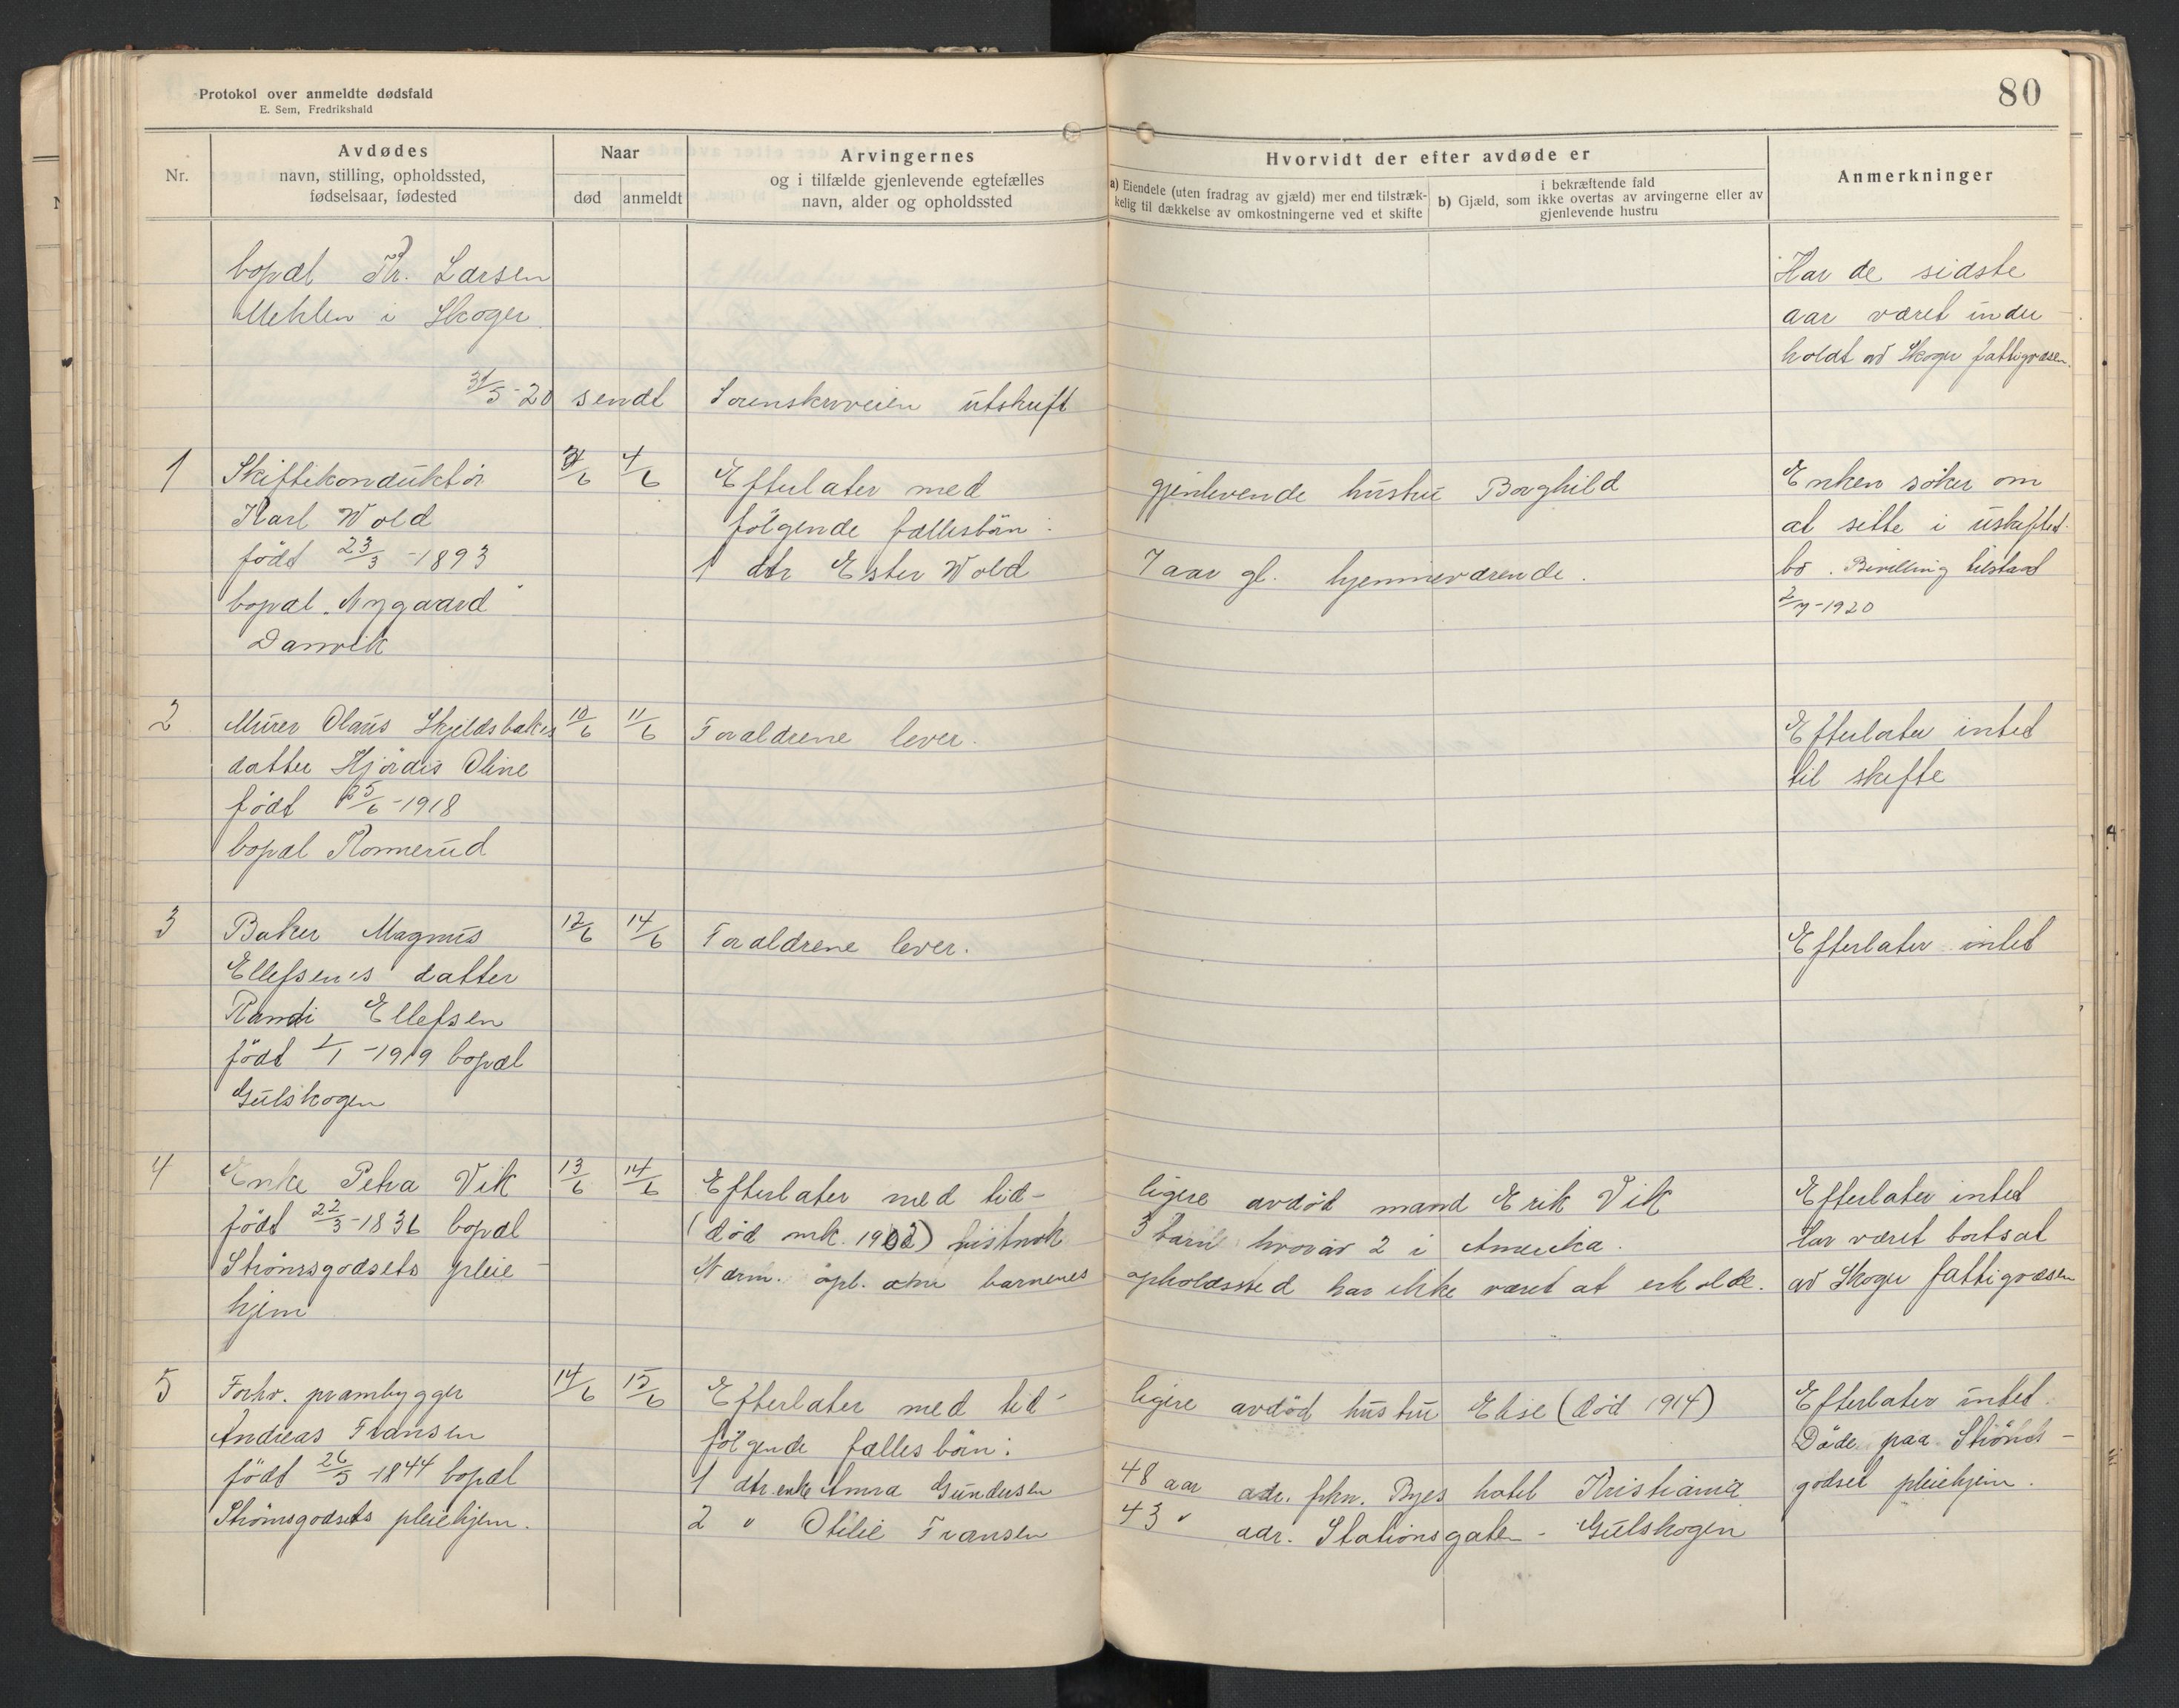 Protokol over anmeldte dødsfald
E. Sem, Fredrikshald
80
Nr.
Avdødes
navn, stilling, opholdssted,
fødselsaar, fødested
Naar
død
anmeldt
Arvingernes
og i tilfælde gjenlevende egtefælles
navn, alder og opholdssted
Hvorvidt der efter avdøde er
a) Eiendele (uten fradrag av gjæld) mer end tilstræk-
kelig til dækkelse av omkostningerne ved et skifte
i bekræftende fald
b) Gjæld, som ikke overtas av arvingerne eller av
gjenlevende hustru
Anmerkninger
bopæl Kr. Larsen
Mehlen i Skoger
Har de sidste
aar været under
holdt av Skoger fattigvæsen.
31/5-20 sendt Sorenskriveren utskrift
1 Skiftekonduktør 3/6 4/6 Efterlater med gjenlevende hustru Borghild
Karl Wold følgende fællesbørn:
født 23/3-1893 1 dtr Ester Wold 7 aar gl. hjemmeværende.
bopæl "Nygaard"
Danvik
Enken søker om
at sitte i uskiftet
bo. Bevilling tilstaat
2/7-1920
2 Murer Olaus Skjeldsbækes 10/6 11/6 Forældrene lever.
datter Hjørdis Oline
født 25/6-1918
bopæl Konnerud
Efterlater intet
til skifte
3 Baker Magnus 12/6 14/6 Forældrene lever. Efterlater intet
Ellefsen's datter
Randi Ellefsen
født 1/1-1919 bopæl
Gulskogen
4 Enke Petra Vik 13/6 14/6 Efterlater med tid- ligere avdød mand Erik Vik
født 22/3-1836 bopæl (død mk. 1902) vistnok 3 barn hvorav 2 i Amerika.
Strømsgodsets pleie- Nærm. opl. om barnenes opholdssted har ikke været at erholde.
hjem
Efterlater intet
Har været bortsat
av Skoger fattigvæsen
5 Forhv. prambygger 14/6 15/6 Efterlater med tid- ligere avdød hustru Elise (død 1914)
Andreas Fransen følgende fællesbørn:
født 26/5-1844 bopæl 1 dtr. enke Anna Gundersen 48 aar adr. frkn. Byes hotel Kristiania
Strømsgodsets pleiehjem. 2 " Otilie Fransen 43 " adr. Stationsgaten - Gulskogen
Efterlater intet.
Døde paa Strøms-
godset pleiehjem.